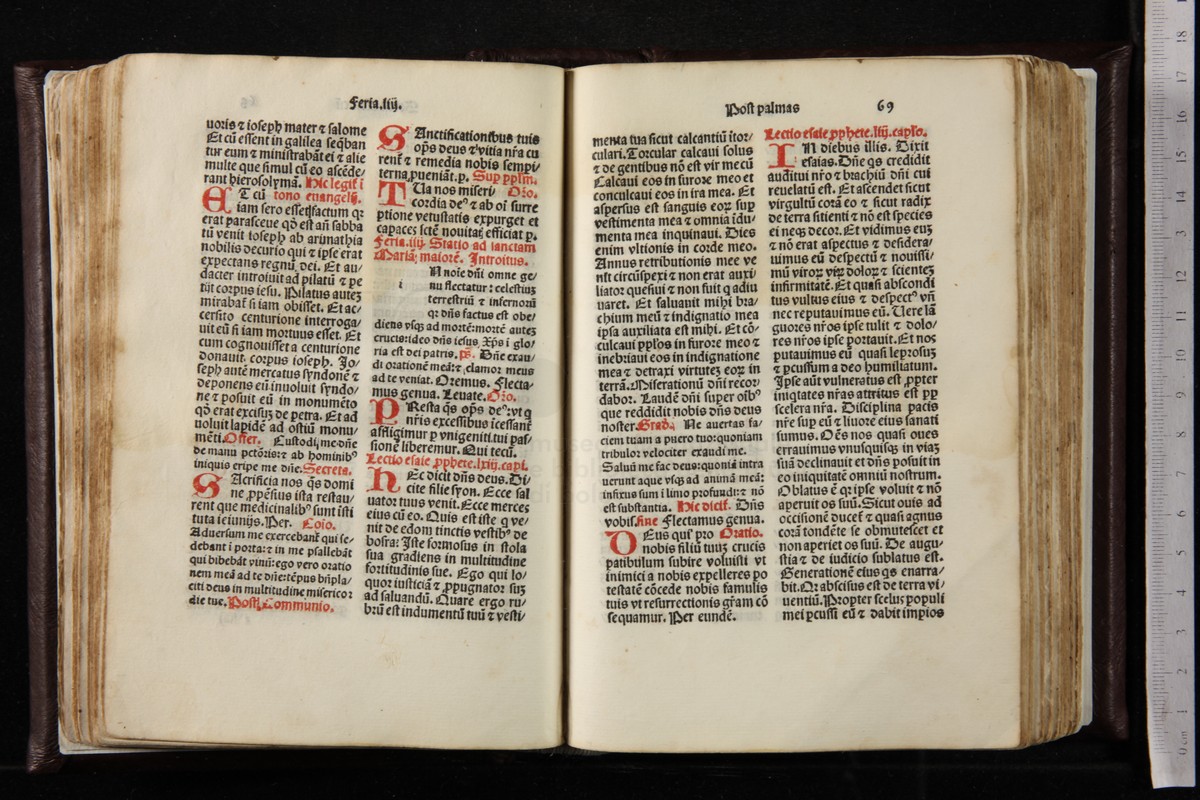 Feria.iiij.
uoris ⁊ ioseph mater ⁊ salome
Et cū essent in galilea seq̄ban
tur eum ⁊ ministrabāt ei ⁊ alie
multe que simul cū eo ascēde/
rant hierosolymā. Hic legit͛ ī
tono euangelij.
ET cū
iam sero esset factum qꝛ
erat parasceue qd̄ est añ sabba
tū venit ioseph ab arimathia
nobilis decurio qui ⁊ ipse erat
expectans regnū dei. Et au/
dacter introiuit ad pilatū ⁊ pe
tijt corpus iesu. Pilatus auteꝫ
mirabat͛ si iam obisset. Et ac/
cersito centurione interroga/
uit eū si iam mortuus esset. Et
cum cognouisset a centurione
donauit corpus ioseph. Jo/
seph autē mercatus syndonē ⁊
deponens eū inuoluit syndo/
ne ⁊ posuit eū in monumēto
qd̄ erat excisuꝫ de petra. Et ad
uoluit lapidē ad ostiū monu/
mēti. Offer. Custodi me dn̄e
de manu petc̄oris: ⁊ ab hominibꝰ
iniquis eripe me dn̄e. Secreta.
SAcrificia nos qs domi
ne ꝓpēsius ista restau/
rent que medicinalibꝰ sunt isti
tuta ieiunijs. Per. Coīo.
Aduersum me exercebant͛ qui se/
debant ī porta: ⁊ in me psallebāt
qui bibebāt vinū: ego vero oratio
nem meā ad te dn̄e: tēpus bn̄pla/
citi deus in multitudine misericor
die tue. Post Communio.
SAnctificationibus tuis
op̄s deus ⁊ vitia nr̄a cu
rent͛ ⁊ remedia nobis sempi/
terna ꝓueniāt. p. Sup pplm̄.
TUa nos miseri Or̄o.
cordia deꝰ ⁊ ab oī surre
ptione vetustatis expurget et
capaces sctē nouitatꝭ efficiat. p.
Feria.iiij. Statio ad sanctam
Mariāꝫ maiorē. Introitus.
i N noīe dn̄i omne ge/
nu flectatur: celestiuꝫ
terrestriū ⁊ infernorū
qꝛ dn̄s factus est obe/
diens vsqꝫ ad mortē: mortē auteꝫ
crucis: ideo dn̄s iesus Xp̄s ī glo/
ria est dei patris. ps̄. Dn̄e exau/
di orationē meā: ⁊ clamor meus
ad te veniat. Oremus. Flecta/
mus genua. Leuate. Or̄o.
PResta qs op̄s deꝰ: vt q
nr̄is excessibus īcessant͛
affligimur ꝑ vnigeniti tui pas/
sionē liberemur. Qui tecū.
Lectio esaie ꝓphete. lxiij. capi.
HEc dicit dn̄s deus. Di/
cite filie syon. Ecce sal
uator tuus venit. Ecce merces
eius cū eo. Quis est iste q ve/
nit de edom tinctis vestibꝰ de
bosra: Jste formosus in stola
sua gradiens in multitudine
fortitudinis sue. Ego qui lo/
quor iusticiā ⁊ ꝓpugnator suꝫ
ad saluandū. Quare ergo ru/
brū est indumentū tuū ⁊ vesti/
Post palmas 69
menta tua sicut calcantiū ī tor/
culari. Torcular calcaui solus
⁊ de gentibus nō est vir mecū
Calcaui eos in furore meo et
conculcaui eos in ira mea. Et
aspersus est sanguis eoꝝ suꝑ
vestimenta mea ⁊ omnia īdu/
menta mea inquinaui. Dies
enim vltionis in corde meo.
Annus retributionis mee ve
nit circūspexi ⁊ non erat auxi/
liator quesiui ⁊ non fuit q adiu
uaret. Et saluauit mihi bra/
chium meū ⁊ indignatio mea
ipsa auxiliata est mihi. Et cō/
culcaui pplos in furore meo ⁊
inebriaui eos in indignatione
mea ⁊ detraxi virtuteꝫ eoꝝ in
terrā. Miserationū dn̄i recor/
dabor. Laudē dn̄i super oībꝰ
que reddidit nobis dn̄s deus
noster. Grad. Ne auertas fa/
ciem tuam a puero tuo: quoniam
tribulor velociter exaudi me.
Saluū me fac deus: quoniā intra
uerunt aque vsqꝫ ad animā meā:
infixus sum ī limo profundi: ⁊ nō
est substantia. Hic dicit͛. Dn̄s
vobis. sine Flectamus genua.
DEus qui pro Oratio.
nobis filiū tuuꝫ crucis
patibulum subire voluisti vt
inimici a nobis expelleres po
testatē cōcede nobis famulis
tuis vt resurrectionis gr̄am cō
sequamur. Per eundē.
Lectio esaie ꝓphete. liij. caplo.
IN diebus illis. Dixit
esaias. Dn̄e qs credidit
auditui nr̄o ⁊ brachiū dn̄i cui
reuelatū est. Et ascendet sicut
virgultū corā eo ⁊ sicut radix
de terra sitienti ⁊ nō est species
ei neqꝫ decor. Et vidimus euꝫ
⁊ nō erat aspectus ⁊ desidera/
uimus eū despectū ⁊ nouissi/
mū viroꝝ virꝫ doloꝝ ⁊ scienteꝫ
infirmitatē. Et quasi abscondi
tus vultus eius ⁊ despectꝰ vn̄
nec reputauimus eū. Uere lā
guores nr̄os ipse tulit ⁊ dolo/
res nr̄os ipse portauit. Et nos
putauimus eū quasi leprosuꝫ
⁊ ꝑcussum a deo humiliatum.
Jpse aūt vulneratus est ꝓpter
iniqtates nr̄as attritus est ꝓp
scelera nr̄a. Disciplina pacis
nr̄e sup eū ⁊ liuore eius sanati
sumus. Oēs nos quasi oues
errauimus vnusquisqꝫ in viaꝫ
suā declinauit et dn̄s posuit in
eo iniquitatē omniū nostrum.
Oblatus ē qꝛ ipse voluit ⁊ nō
aperuit os suū. Sicut ouis ad
occisionē ducet͛ ⁊ quasi agnus
corā tondēte se obmutescet et
non aperiet os suū. De angu/
stia ⁊ de iudicio sublatus est.
Generationē eius qs enarra/
bit. Qꝛ abscisus est de terra vi/
uentiū. Propter scelus populi
mei ꝑcussi eū ⁊ dabit impios